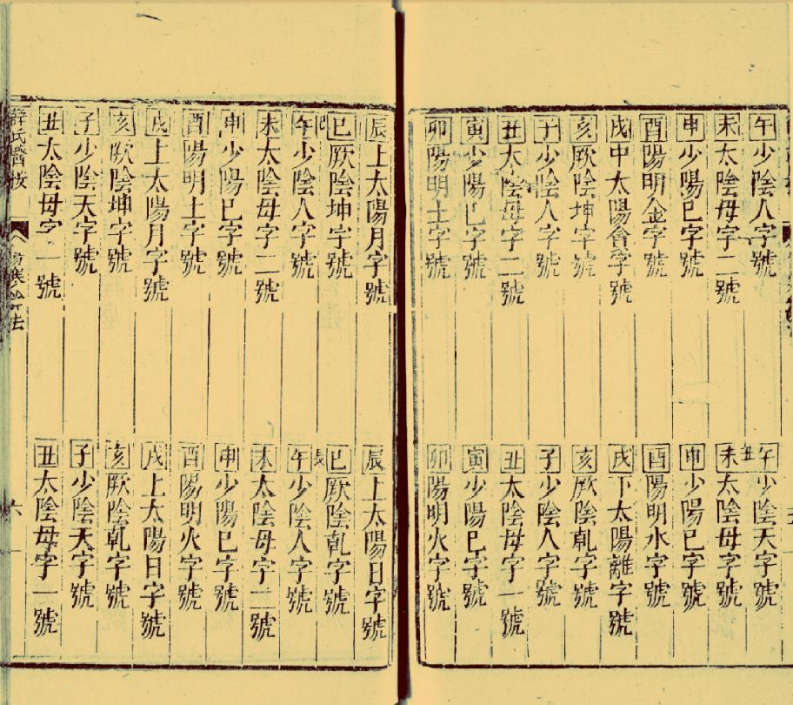 午少陰人字號 午少陰天字號
未太陰母字二號 未太陰母字號
申少陽巳字號 申少陽巳字號
酉陽明金字號 酉陽明水字號
戌中太陽會字號 戌下太陽離字號
亥厥陰坤字號 亥厥陰乹字號
子少陰人字號 子少陰人字號
丑太陰母字二號 丑太陰母字一號
寅少陽巳字號 寅少陽巳字號
卯陽明土字號 卯陽明火字號
辰上太陽月字號 辰上太陽日字號
巳厥陰坤字號 巳厥陰乹字號
午少陰人字號 午少陰人字號
未太陰母字二號 未太陰母字二號
申少陽巳字號 申少陽巳字號
酉陽明土字號 酉陽明火字號
戌上太陽月字號 戌上太陽日字號
亥厥陰坤字號 亥厥陰乹字號
子少陰天字號 子少陰天字號
丑太陰母字一號 丑太陰母字一號
薛氏醫按 寒 法 六